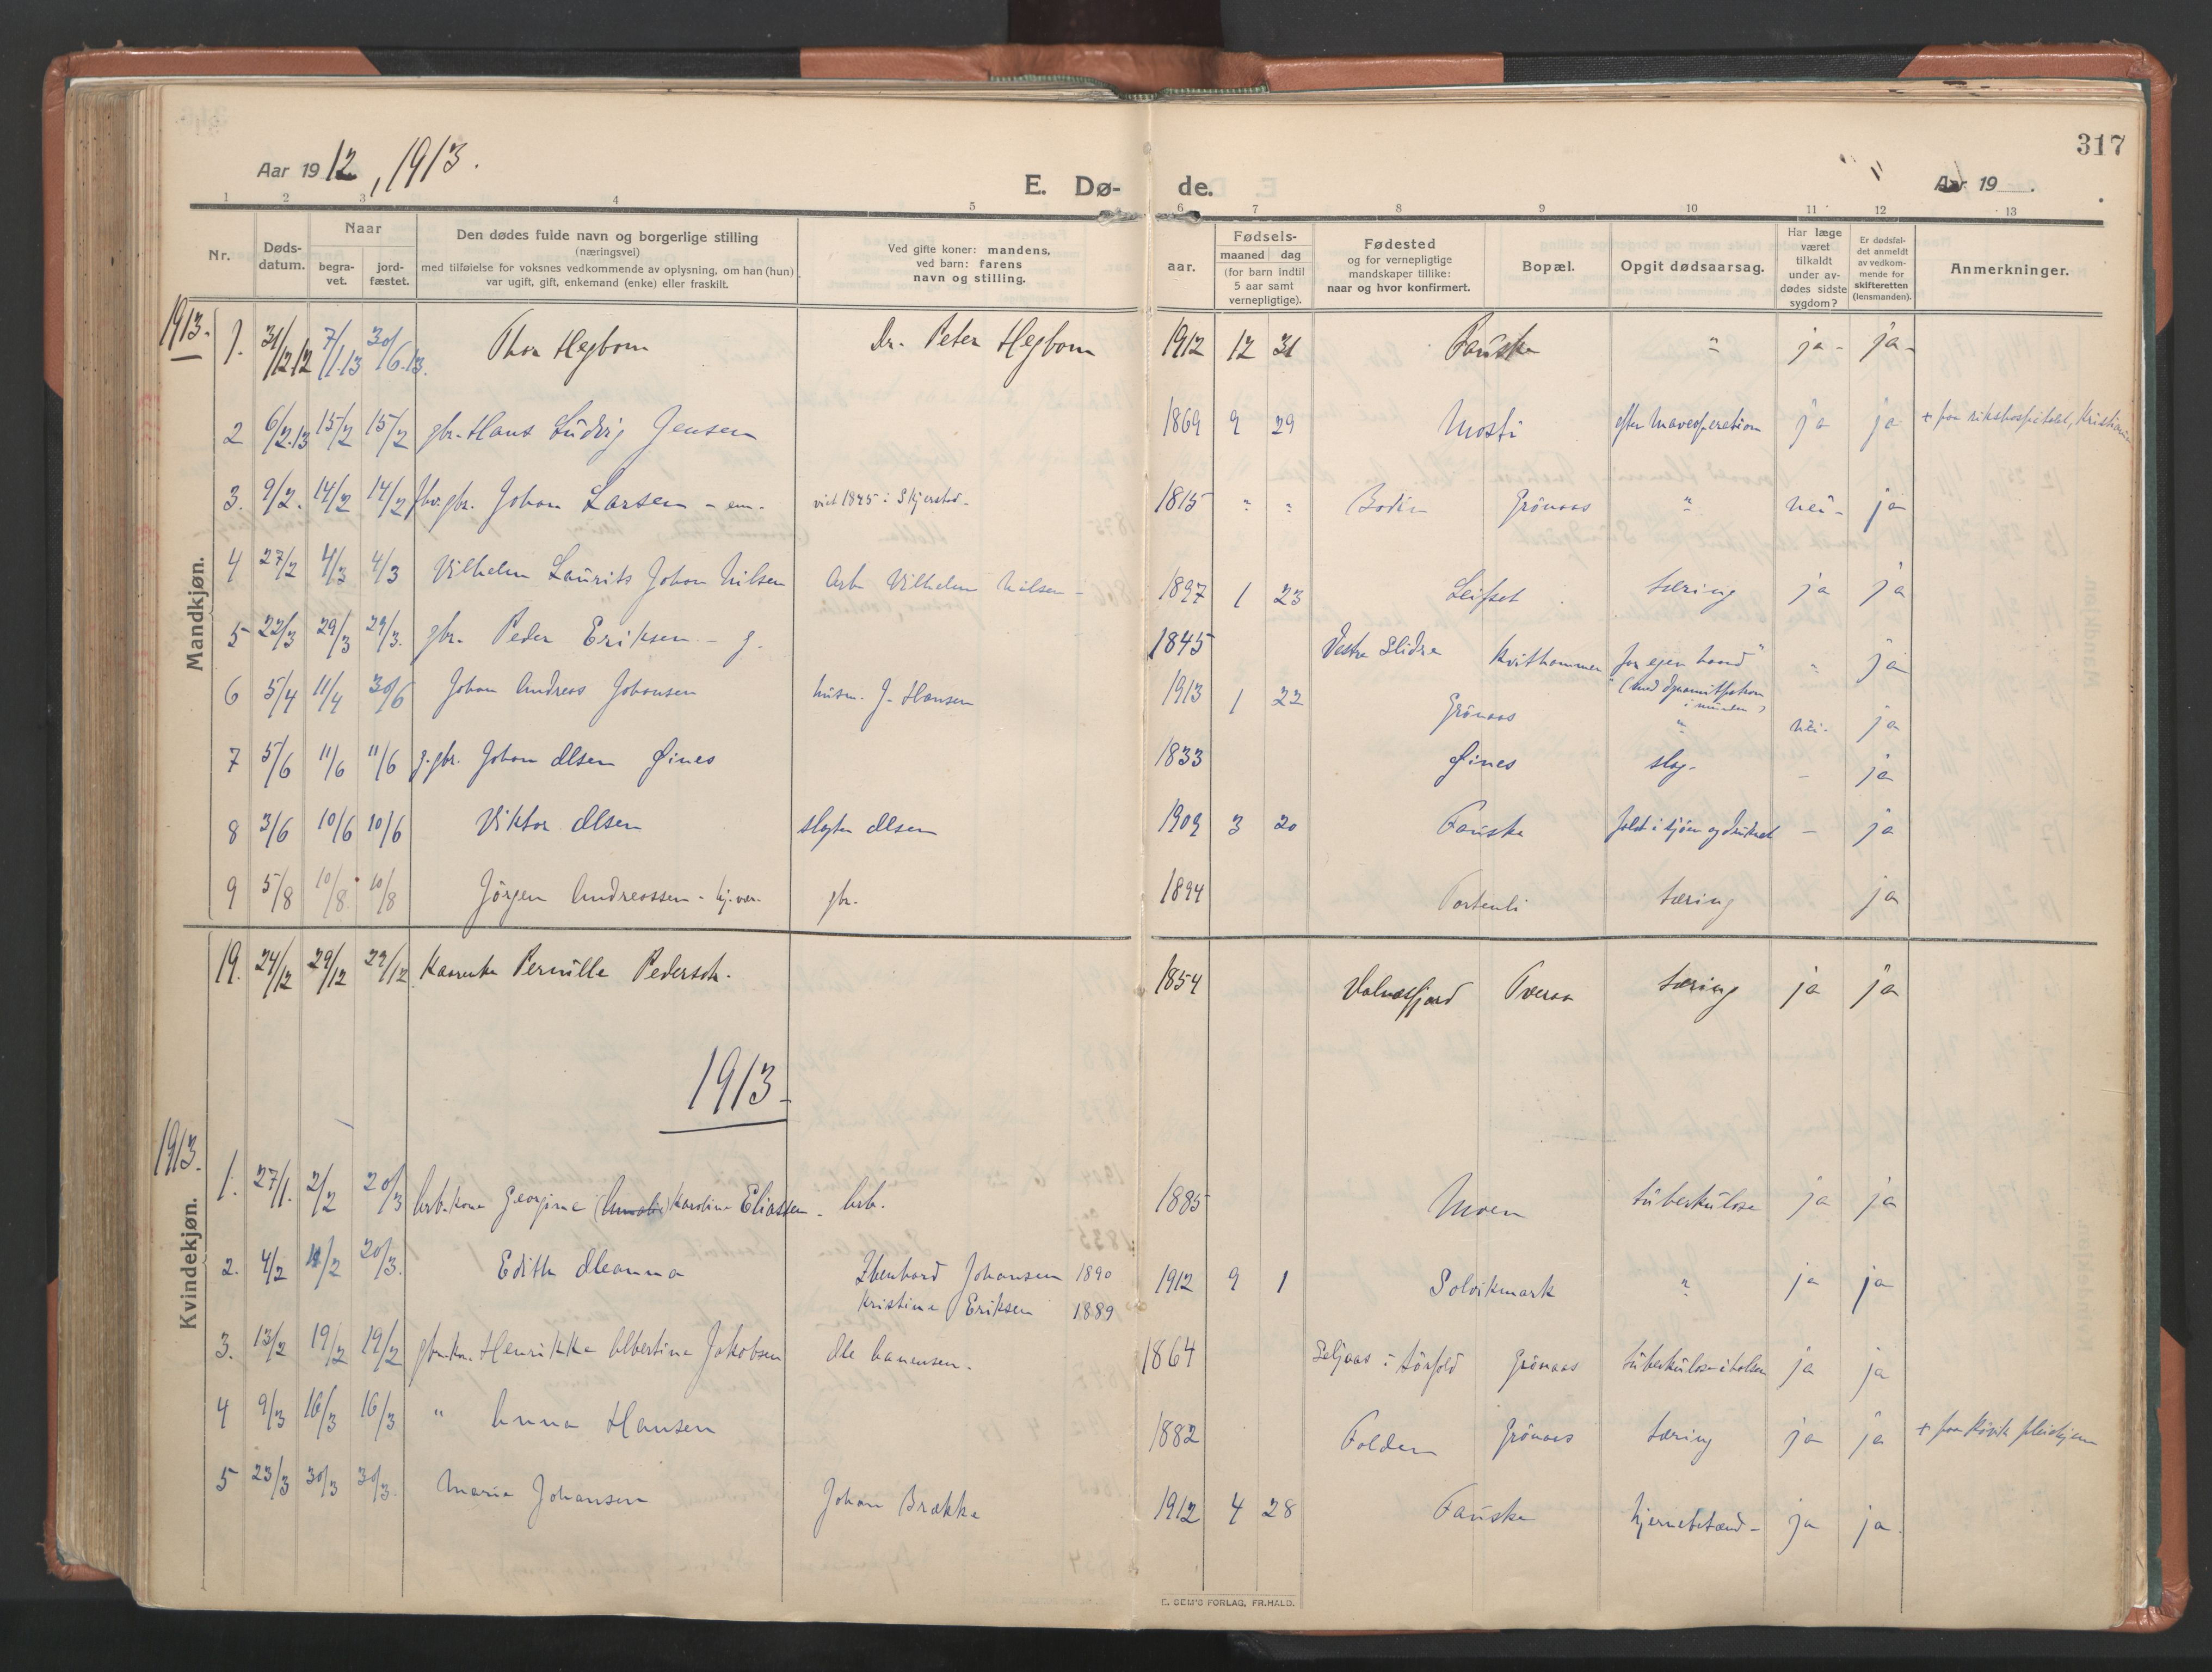 317
Aar 1912, 1913.
E. Dø- de.
Aar 19 .
1 2 3 4 5 6 7 8 9 10 11 12 13
Nr.
Døds-
datum.
Naar
begra-
vet.
jord-
fæstet.
Den dødes fulde navn og borgerlige stilling
(næringsvei)
med tilføielse for voksnes vedkommende av oplysning, om han (hun)
var ugift, gift, enkemand (enke) eller fraskilt.
Ved gifte koner: mandens,
ved barn: farens
navn og stilling.
aar.
Fødsels-
maaned dag
(for barn indtil
5 aar samt
vernepligtige).
Fødested
og for vernepligtige
mandskaper tillike:
naar og hvor konfirmert.
Bopæl.
Opgit dødsaarsag.
Har læge
været
tilkaldt
under av-
dødes sidste
sygdom?
Er dødsfal-
det anmeldt
av vedkom-
mende for
skifteretten
(lensmanden).
Anmerkninger.
Mandkjøn.
1913.
1. 31/12.12 7/1.13 30/6.13. Thor Hegbom Dr. Peter Hegbom 1912 12 31 Fauske " ja - ja -
2 6/2.13 15/2 15/2 gbr. Hans Ludvig Jensen 1869 9 29 Mosti efter maveoperation ja ja + paa rikshospitalet, Kristiania
3. 9/2. 14/2 14/2 fhv. gbr. Johan Larsen - em. viet 1845 i Skjerstad. 1815 " " Bodin Grönaas " nei - ja
4 27/2 4/3 4/3 Vilhelm Laurits Johan Nilsen Arb Vilhelm Nilsen - 1897 1 23 Leifset tæring ja ja
5 22/3 29/3 29/3. gbr. Peder Eriksen - g. 1845 Vestre Slidre Kvithammer for egen haand " ja
(med dynamitpatron
i munden)
6 5/4 11/4 30/6 Johan Andreas Johansen husm. J. Hansen 1913 1 22 Grönaas " nei - ja
7 5/6 11/6 11/6 g. gbr. Johan Olsen Øines 1833 Øines slag - - ja
8 3/6 10/6 10/6 Viktor Olsen slagter Olsen 1909 3 20 Fauske faldt i sjöen og druknet - ja
9 5/8 10/8 10/8 Jörgen Andreassen - hj. vær. gbr. 1894 Tortenli tæring ja
Kvindekjøn.
19. 24/12 29/12 29/12 Pernille Pedersdr. 1854 Valnesfjord Tveraa tæring ja ja
1913 -
1913.
1. 27/1. 2/2 20/3 Arb. kone Georgine Karoline Eliassen - Arb. 1885 Moen tuberkulose ja ja
2. 4/2 11/2 20/3. Edith Oleanna Johansen 1890 1912 9 1 Solvikmark " ja ja
Kristine Eriksen 1889
3. 13/2 19/2 19/2 gbr. kn. Henrikke Albertine Jakobsen Ole Hanensen. 1864 Seljaas i Sörfold Grönaas tuberkulose i halsen ja ja
4 9/3 16/3 16/3 " Anna Hansen 1882 Folden Grönaas tæring ja ja + paa Røvik pleiehjem
5 23/3 30/3 30/3. Maria Johansen Johan Brække 1912 4 28 Fauske hjernebetænd - ja ja
E. SEM'S FORLAG, FR.HALD.